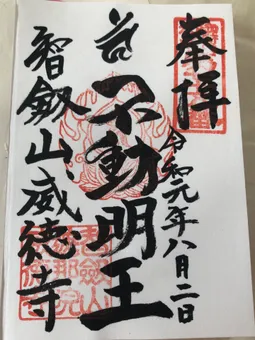 奉拝
令和元年八月二日
不動明王
智劔山威徳寺